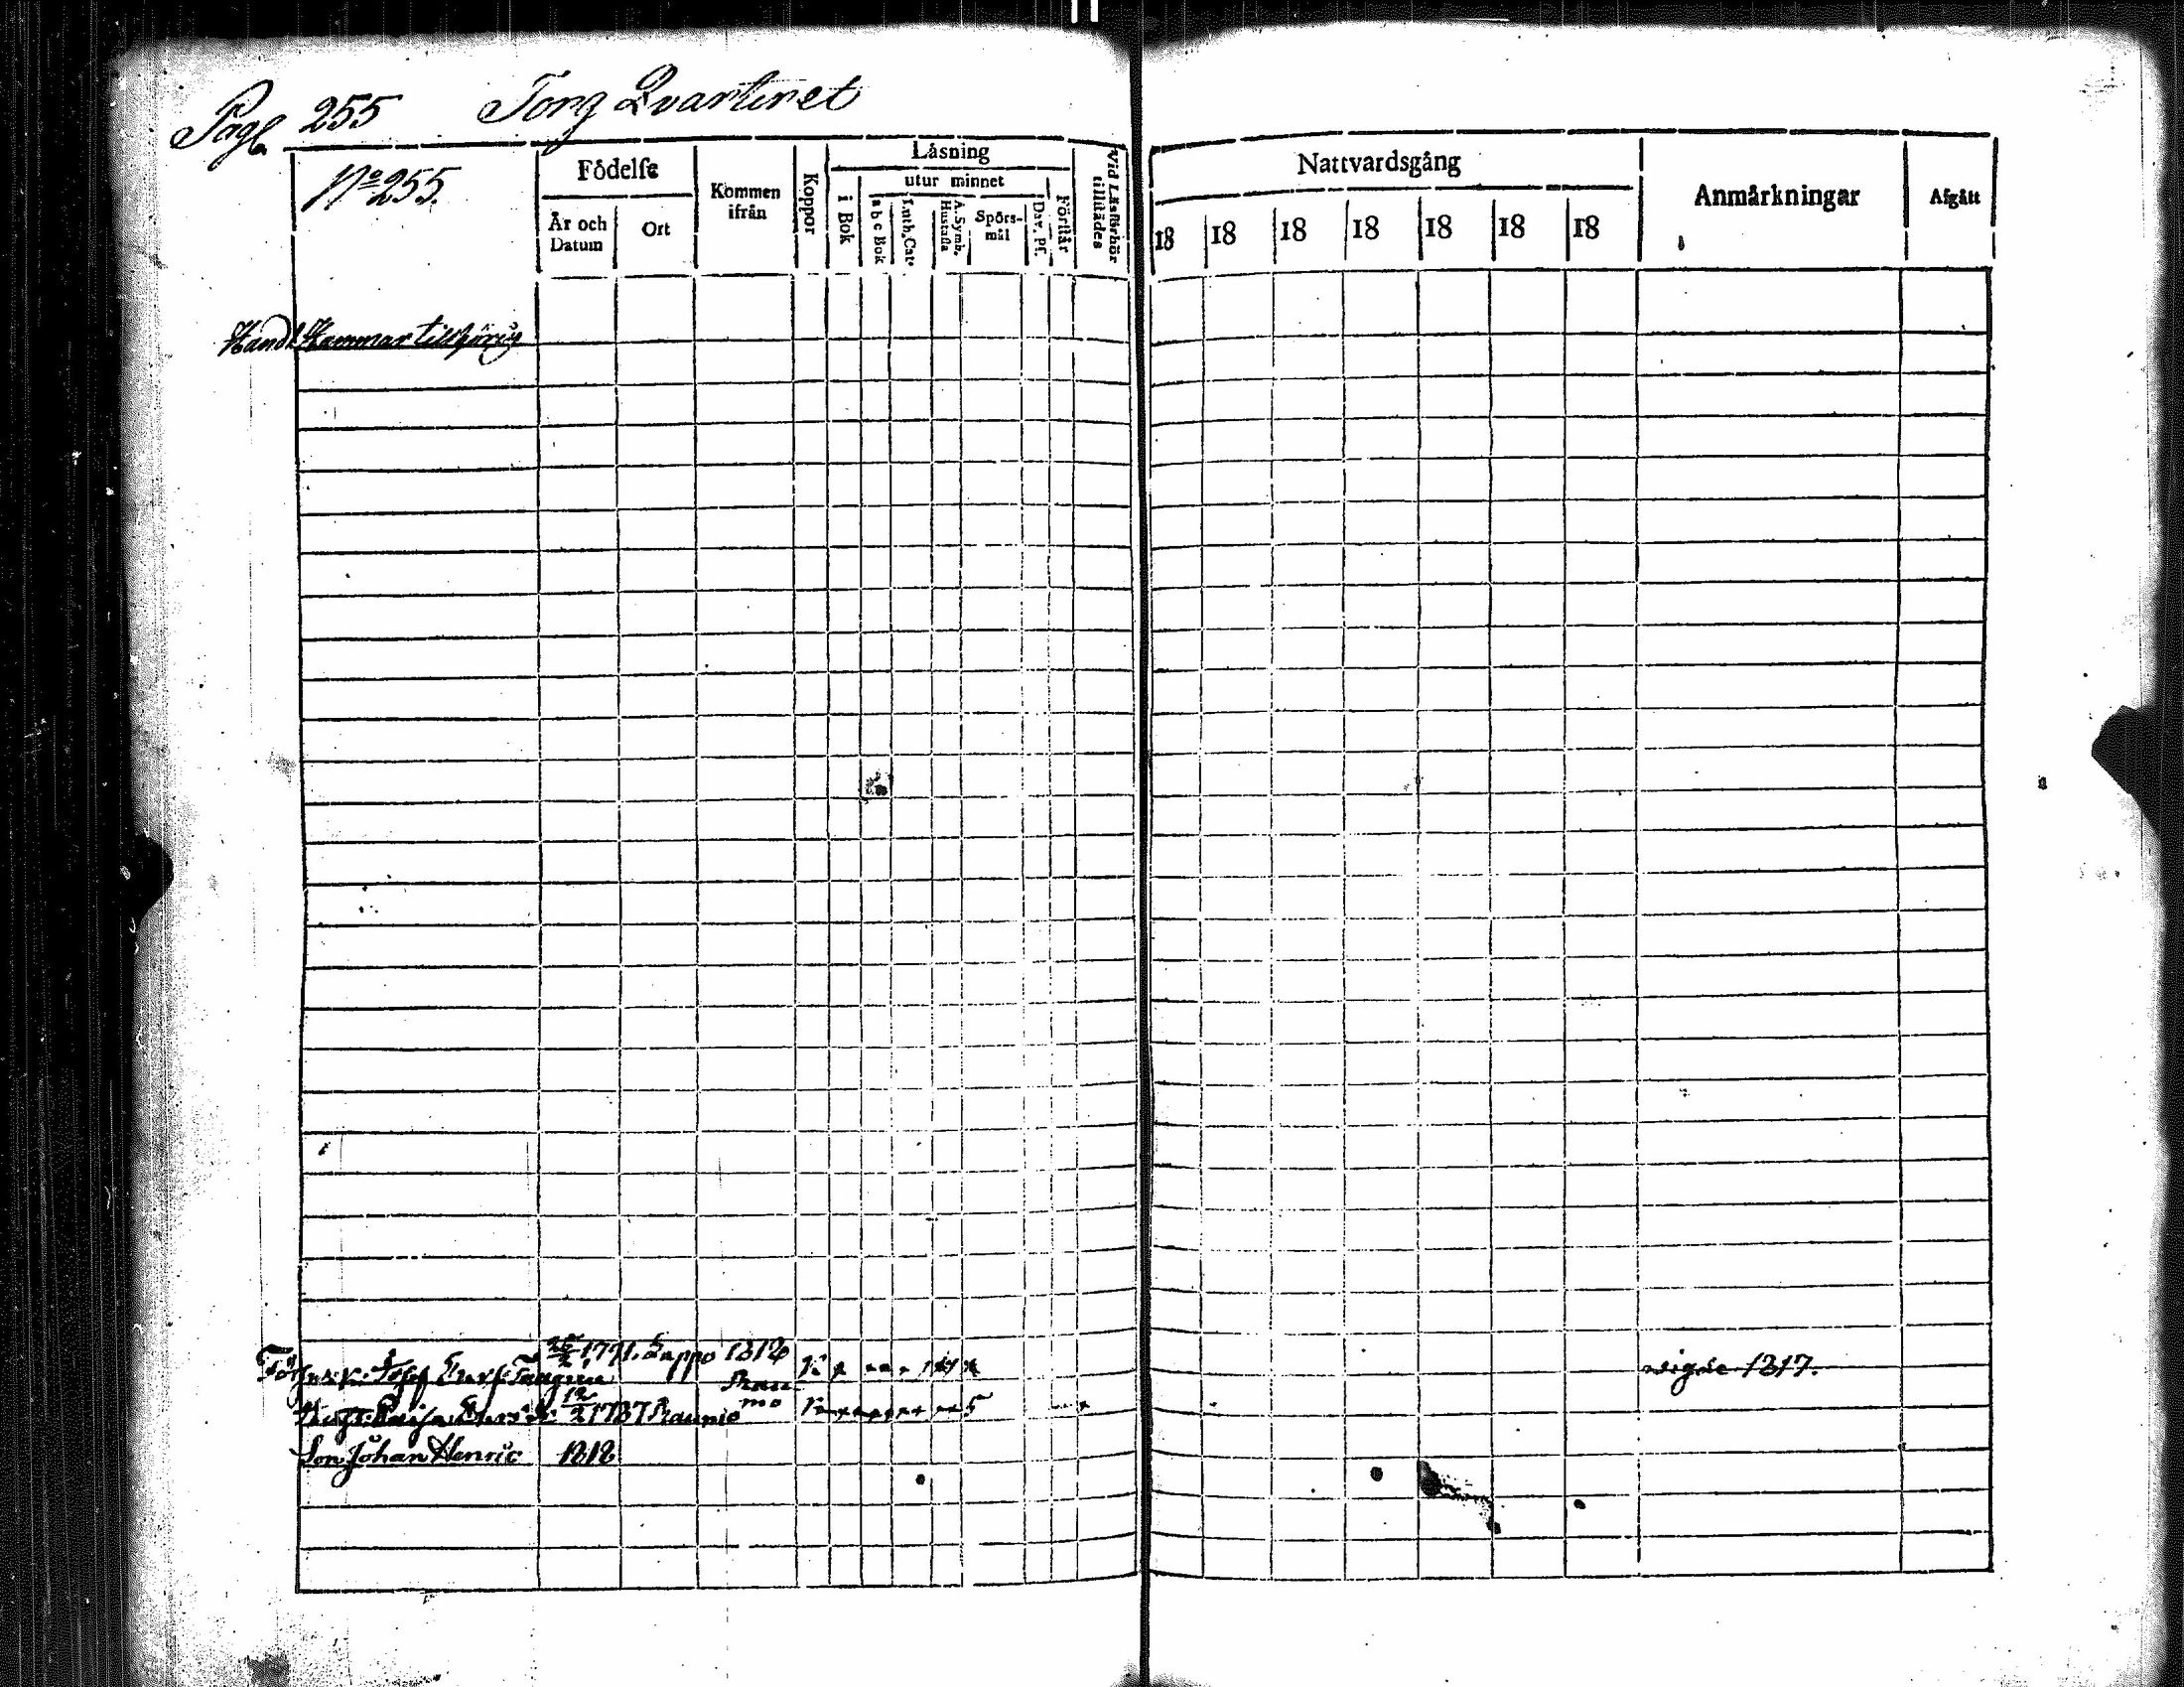 Pag. 255 Torg Qvarteret
No 255.
Födelse
År och Datum
Ort
Kommen ifrån
Koppor
Läsning
i Bok
utur minnet
a b c Bok
Luth. Cat.
A. Symb. Hustafla
Spörsmål
Dav. Pſ.
Förſtår
Vid Läsförhör tillſtädes
Nattvardsgång
18 18 18 18 18 18 18
Anmärkningar
Afgått
Handl Hammar tillhörig
25/2 1791. Lappo 1812
Josef 
wigde 1817.
Hust. Caisa 12/2 1787 Raumo
Raumo
Son Johan Henric 1818